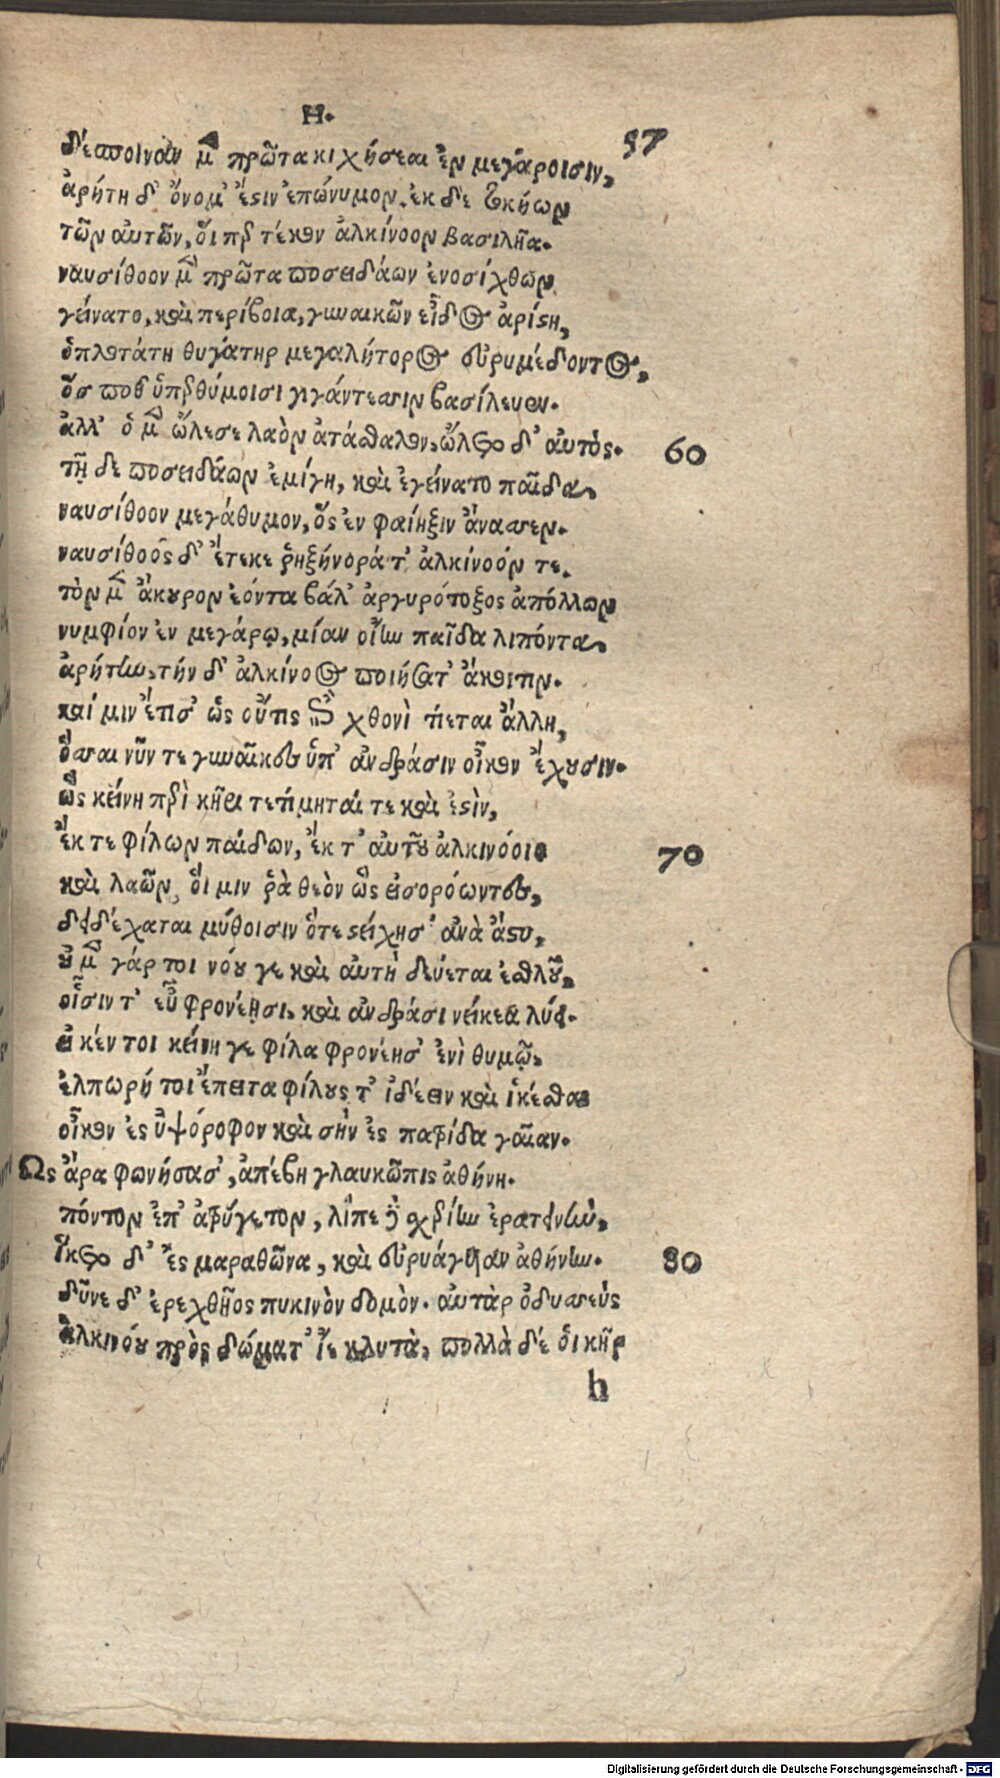 Η.
57
δέσποιναν μὲν πρῶτα κιχήσεαι ἐν μεγάροισιν,
ἀρήτη δ' ὄνομ' ἐστὶν ἐπώνυμον. ἐκ δὲ τοκήων
τῶν αὐτῶν, οἵπερ τέκον ἀλκίνοον βασιλῆα.
ναυσίθοον μὲν πρῶτα ποσειδάων ἐνοσίχθων
γείνατο, καὶ περίβοια, γυναικῶν εἶδος ἀρίστη,
ὁπλοτάτη θυγάτηρ μεγαλήτορος εὐρυμέδοντος,
ὅσ ποθ' ὑπερθύμοισι γιγάντεσσιν βασίλευεν.
ἀλλ' ὁ μὲν ὤλεσε λαὸν ἀτάσθαλον, ὤλετο δ' αὐτός. 60
τῇ δὲ ποσειδάων ἐμίγη, καὶ ἐγείνατο παῖδα,
ναυσίθοον μεγάθυμον, ὅς ἐν φαίηξιν ἄνασσεν.
ναυσίθοος δ' ἔτεκε ῥηξήνορά τ' ἀλκίνοόν τε.
τὸν μὲν ἄκουρον ἐόντα βάλ' ἀργυρότοξος ἀπόλλων
νυμφίον ἐν μεγάρῳ, μίαν οἴην παῖδα λιπόντα,
ἀρήτην, τήν δ' ἀλκίνοος ποιήσατ' ἄκοιτιν.
καί μιν ἔτισ' ὡς οὔτις ἐπὶ χθονὶ τίεται ἄλλη,
ὅσσαι νῦν τε γυναῖκες ὑπ' ἀνδράσιν οἶκον ἔχουσιν.
ὣς κείνη περὶ κῆρι τετίμηταί τε καὶ ἐστὶν,
ἔκ τε φίλων παίδων, ἔκ τ' αὐτοῦ ἀλκινόοιο 70
καὶ λαῶν, οἵ μιν ῥὰ θεὸν ὣς εἰσορόωντες,
δειδέχαται μύθοισιν ὅτε στείχησ' ἀνὰ ἄστυ,
οὐ μὲν γάρ τοι νόου γε καὶ αὐτὴ δεύεται ἐσθλοῦ,
οἷσιν τ' εὖ φρονέῃσι, καὶ ἀνδράσι νείκεα λύει.
εἰ κέν τοι κείνη γε φίλα φρονέησ' ἐνὶ θυμῷ,
ἐλπωρή τοι ἔπειτα φίλους τ' ἰδέειν καὶ ἱκέσθαι
οἶκον ἐς ὑψόροφον καὶ σὴν ἐς πατρίδα γαῖαν.
Ως ἄρα φωνήσασ', ἀπέβη γλαυκῶπις ἀθήνη.
πόντον ἐπ' ἀτρύγετον, λίπε δὲ σχερίην ἐρατεινὴν,
ἵκετο δ' ἐς μαραθῶνα, καὶ εὐρυάγυιαν ἀθήνην. 80
δῦνε δ' ἐρεχθῆος πυκινὸν δομὸν. αὐτὰρ ὀδυσσεὺς
ἀλκινόου πρὸς δώματ' ἴε κλυτὰ, πολλὰ δέ οἱ κῆρ
h
Digitalisierung gefördert durch die Deutsche Forschungsgemeinschaft - DFG